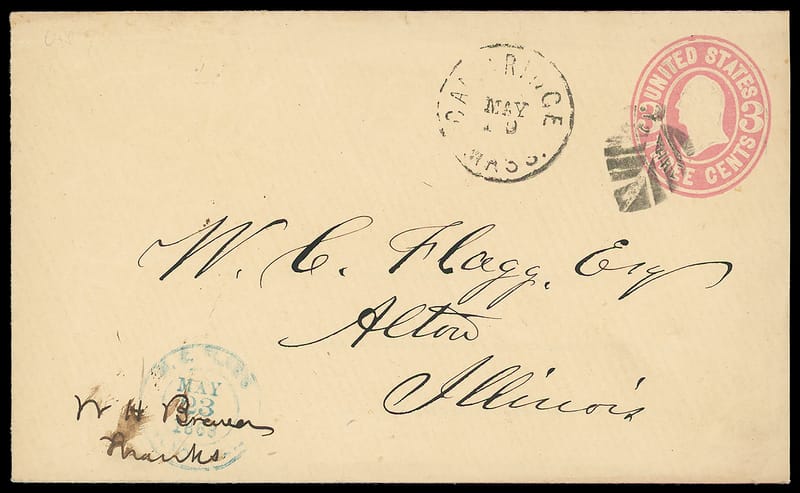 CAMBRIDGE
MAY
MASS.
UNITED STATES
3 3
THREE CENTS
W. C. Flagg, Esq
Alton
Illinois
MAY
23
W H Brewer
Thanks